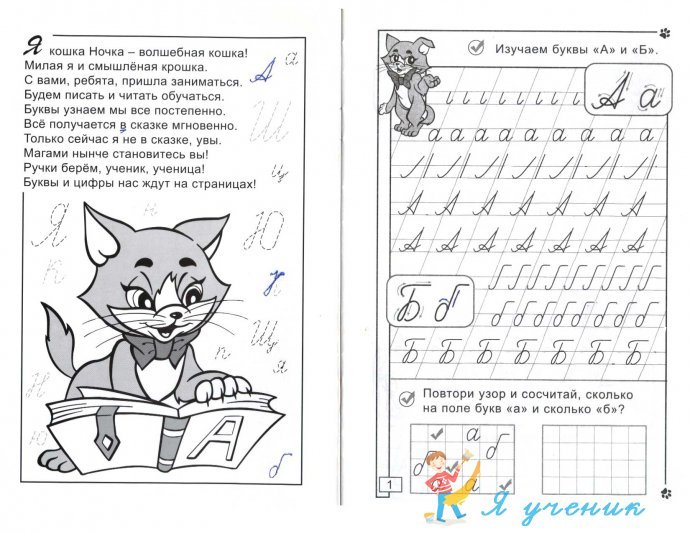 Я кошка Ночка – волшебная кошка!
Милая я и смышлёная крошка.
С вами, ребята, пришла заниматься.
Будем писать и читать обучаться.
Буквы узнаем мы все постепенно.
Всё получается в сказке мгновенно.
Только сейчас я не в сказке, увы.
Магами нынче становитесь вы!
Ручки берём, ученик, ученица!
Буквы и цифры нас ждут на страницах!
А а
Ш
ц
Я п Ю
к
Щ
п я
Н
А
ю
б
Изучаем буквы «А» и «Б».
А а
а а а а а а а а
А А А А А А А
А А А А А А А
Б б
б б б б б б б б
Б Б Б Б Б Б Б
Повтори узор и сосчитай, сколько
на поле букв «а» и сколько «б»?
а
б
б
а
1
Я ученик